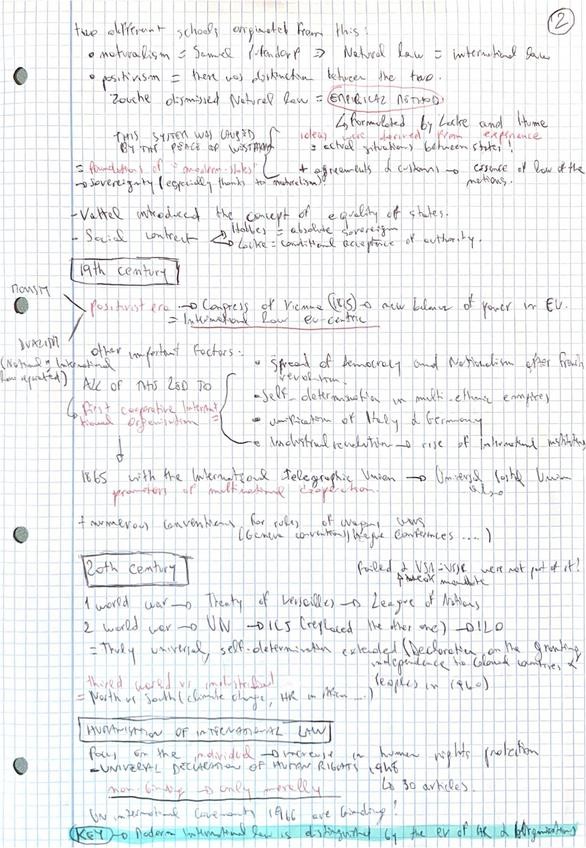 2
two different schools originated from this:
• naturalism = Samuel Pufendorf => Natural law = international law
• positivism = there was distinction between the two.
Zouche dismissed Natural law = EMPIRICAL METHOD
↳ formulated by Locke and Hume
THIS SYSTEM WAS CAUSED
BY THE PEACE OF
ideas were derived from experience
= actual situations between states!
= foundations of "modern states"
+ agreements & customs → essence of law of the nations.
→ sovereignty (especially thanks to naturalism)
- Vattel introduced the concept of equality of states.
- Social contract → Hobbes = absolute sovereign
→ Locke = conditional acceptance of authority.
19th century
MONISM
positivist era → Congress of Vienna (1815) → new balance of power in EU.
= International law eu-centric
DUALISM
(National & International law separated)
other important factors:
• spread of democracy and Nationalism after French revolution.
ALL OF THIS LED TO
• self-determination in multi-ethnic empires
first cooperative International Organisation =
• unification of Italy & Germany
• industrial revolution → rise of International institutions
1865 with the International Telegraphic Union → Universal Postal Union
promoters of multinational cooperation.
+ numerous conventions for rules of waging wars
(Geneva conventions, Hague Conferences ....)
20th century
failed & USA-USSR were not part of it!
& weak mandate
1 world war → Treaty of Versailles → League of Nations
2 world war → UN → ICJ (replaced the other one) → ILO
= Truly universal, self-determination extended (Declaration on the granting
independence to Colonial countries &
Peoples in 1960)
third world vs industrialised
= North vs South (climate change, HR in ...)
HUMANISATION OF INTERNATIONAL LAW
focus on the individual → increase in human rights protection
- UNIVERSAL DECLARATION OF HUMAN RIGHTS 1948
↳ 30 articles.
non-binding → only morally
UN international covenants 1966 are binding!
KEY → Modern International law is distinguished by the ev of HR & Organisations